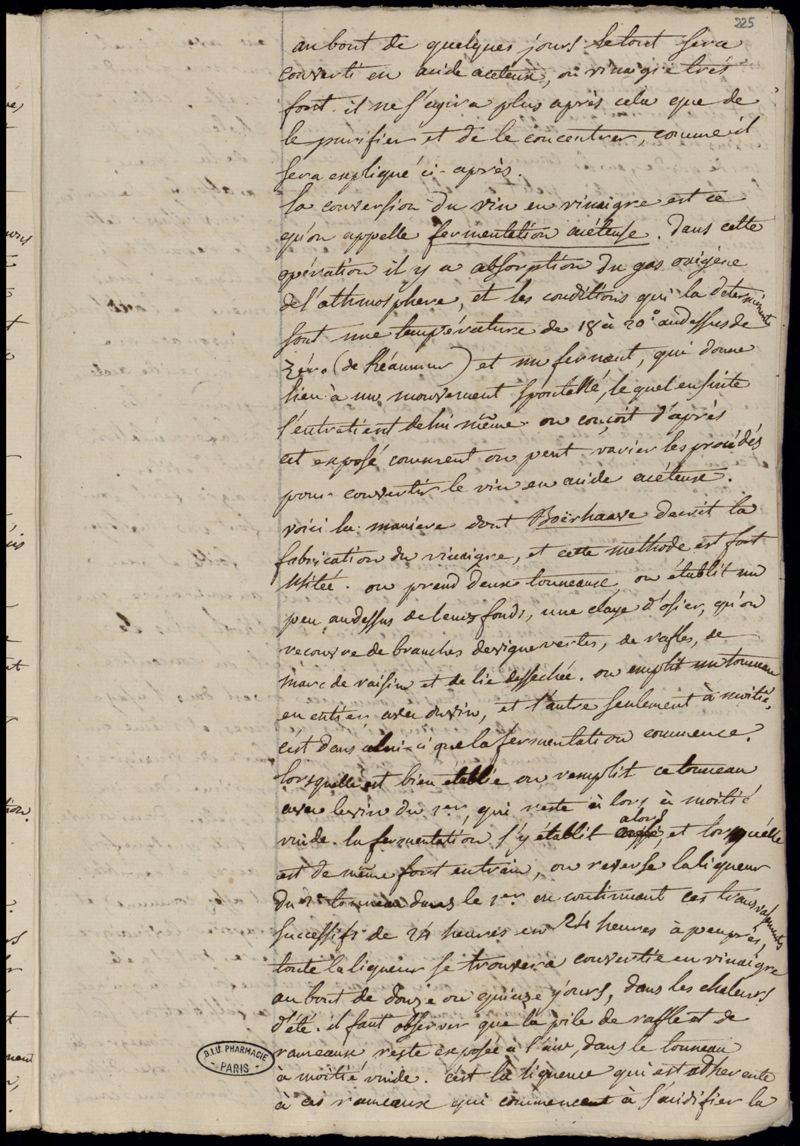 225
au bout de quelques jours le tout sera
converti en acide acéteux, ou vinaigre très
fort. il ne s'agira plus après cela que de
le purifier et de le concentrer, comme il
sera expliqué ci-après.
la conversion du vin en vinaigre est ce
qu'on appelle fermentation acéteuse. Dans cette
opération il y a absorption du gas oxigène
de l'athmosphere, et les conditions qui la déterminent
sont une température de 18 à 20° au dessus de
Zéro (de Réaumur) et un ferment, qui donne
lieu à un mouvement spontané, le quel ensuite
s'entratient de lui même. on conçoit d'après
cet exposé comment on peut varier les procédés
pour convertir le vin en acide acéteux.
voici la maniere dont Boërhaave decrit la
fabrication du vinaigre, et cette methode est fort
usitée. on prend deux tonneaux, on établit un
peu au dessus de leurs fonds, une claye d'osier, qu'on
recouvre de branches de vigne vertes, de rafles, de
marc de raisin et de lie desséchée. on emplit un tonneau
en entier avec du vin, et l'autre seulement à moitié,
c'est dans celui-ci que la fermentation commence.
lorsquelle est bien établie on remplit ce tonneau
avec le vin du 1er, qui reste à lors à moitié
vuide. la fermentation s'y établit alors, et lorsqu'elle
est de même fort en train, on reverse la liqueur
du 2e tonneau dans le 1er. en continuant ces transvasements
successifs de 24 heures en 24 heures à peu près,
toute la liqueur se trouvera convertie en vinaigre
au bout de douze ou quinze jours, dans les chaleurs
d'été. il faut observer que la pile de raffle et de
rameaux reste exposée à l'air, dans le tonneau
à moitié vuide. c'est la liqueur qui est adherente
à ces rameaux qui commence à s'acidifier la
B.I.U. PHARMACIE
PARIS